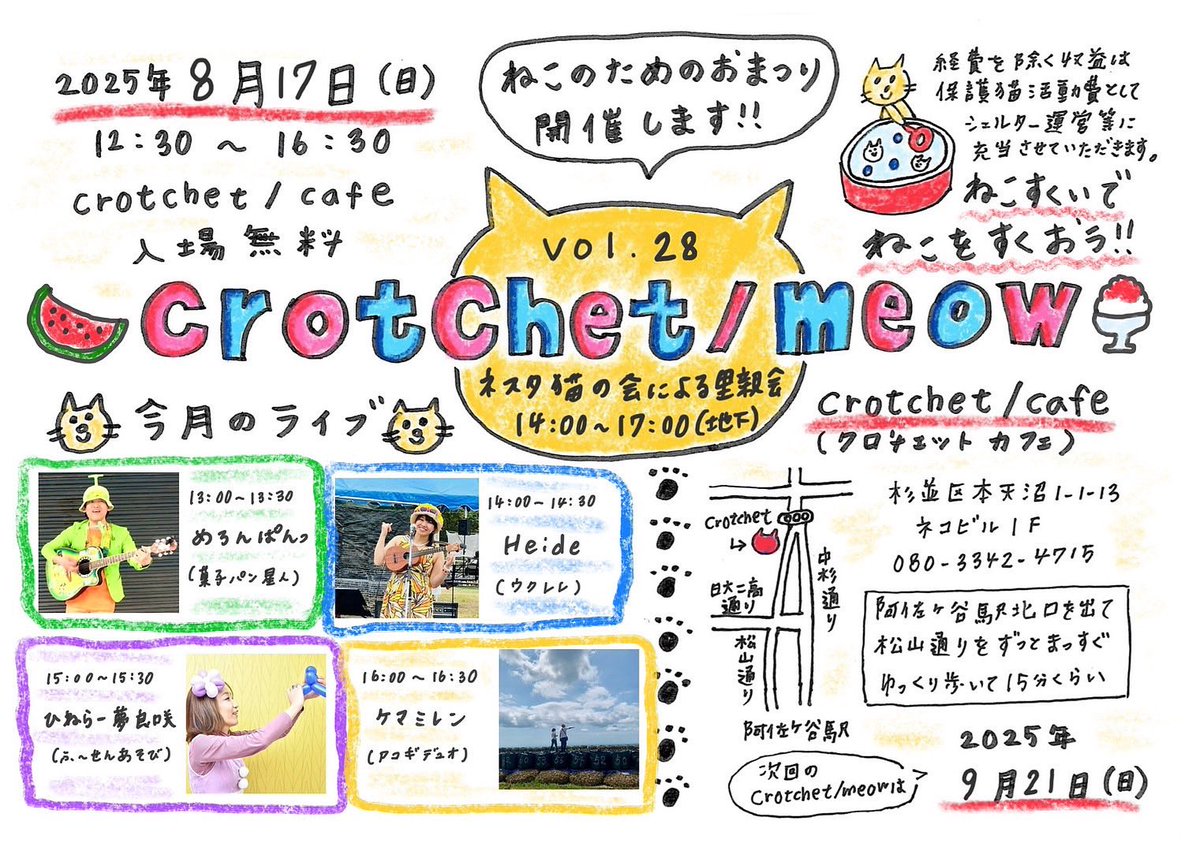 2025年 8月17日(日)
12:30 ～ 16:30
crotchet / cafe
入場無料
ねこのためのおまつり
開催します!!
経費を除く収益は
保護猫活動費として
シェルター運営等に
充当させていただきます。
ねこすくいで
ねこをすくおう!!
vol.28
crotchet/meow
ネスタ猫の会による里親会
14:00～17:00(地下)
今月のライブ
13:00～13:30
めろんぱんっ
(菓子パン星人)
14:00～14:30
Heide
(ウクレレ)
15:00～15:30
ひねらー夢良咲
(ふ～せんあそび)
16:00～16:30
ケマミレン
(アコギデュオ)
crotchet/cafe
(クロチェット カフェ)
杉並区本天沼1-1-13
ネコビル1F
080-3342-4715
Crotchet
中杉通り
日大二高
通り
松山通り
阿佐ヶ谷駅
阿佐ヶ谷駅北口を出て
松山通りをずっとまっすぐ
ゆっくり歩いて15分くらい
次回の
Crotchet/meowは
2025年
9月21日(日)